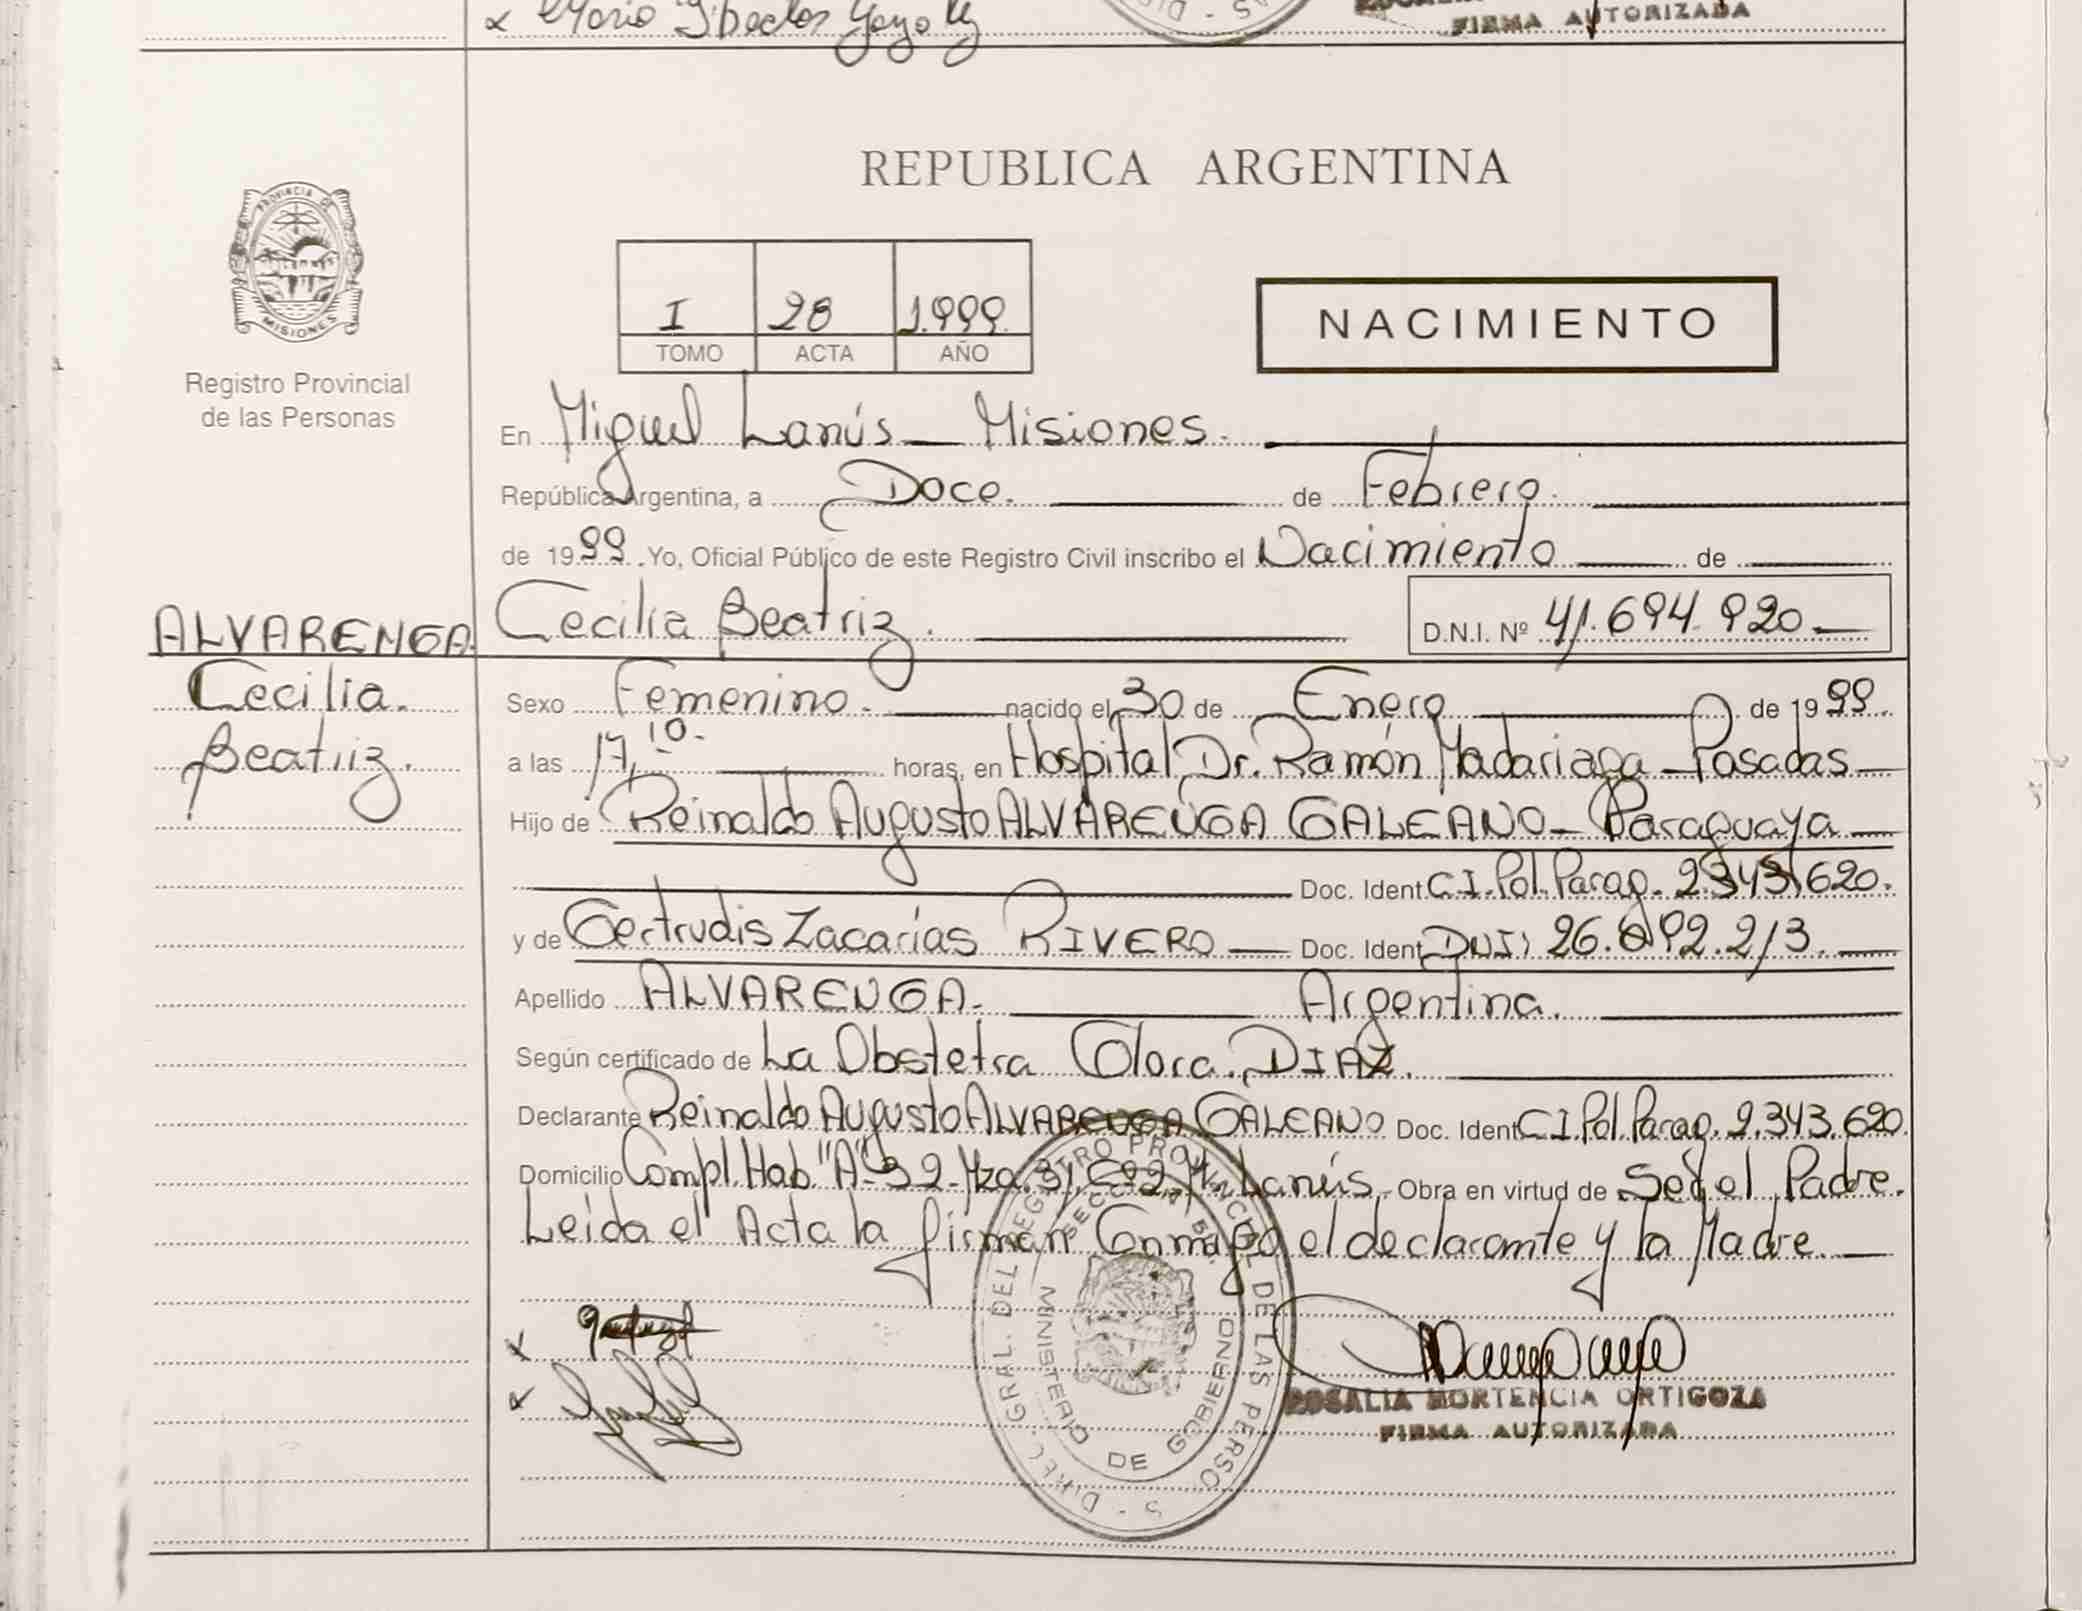 FIRMA AUTORIZADA
PROVINCIA DE
MISIONES
Registro Provincial
de las Personas
REPUBLICA ARGENTINA
I 28 1.999
TOMO ACTA AÑO
NACIMIENTO
En Miguel Lanús - Misiones.
República Argentina, a Doce. de Febrero.
de 1999. Yo, Oficial Público de este Registro Civil inscribo el Nacimiento de
ALVARENGA. Cecilia Beatriz. D.N.I. Nº 41.694.920
Cecilia. Sexo Femenino. nacido el 30 de Enero de 1999.
Beatriz. a las 17,10. horas, en Hospital Dr. Ramón Madariaga - Posadas
Hijo de Reinaldo Augusto ALVARENGA GALEANO - Paraguaya
Doc. Ident. C.I. Pol. Parag. 2.343.620.
y de Gertrudis Zacarías RIVERO Doc. Ident. DNI:
Apellido ALVARENGA. Argentina.
Según certificado de La Obstetra DIAZ.
Declarante Reinaldo Augusto ALVARENGA GALEANO Doc. Ident. C.I. Pol. Parag. 2.343.620.
Domicilio Compl. Hab. "A" 32 Mza. 31 Lanús. Obra en virtud de Ser el Padre.
Leída el Acta la firman Conmigo el declarante y la Madre.
DIREC. GRAL. DEL REGISTRO PROVINCIAL DE LAS PERSONAS
MINISTERIO DE GOBIERNO
ROSALIA HORTENCIA ORTIGOZA
FIRMA AUTORIZADA